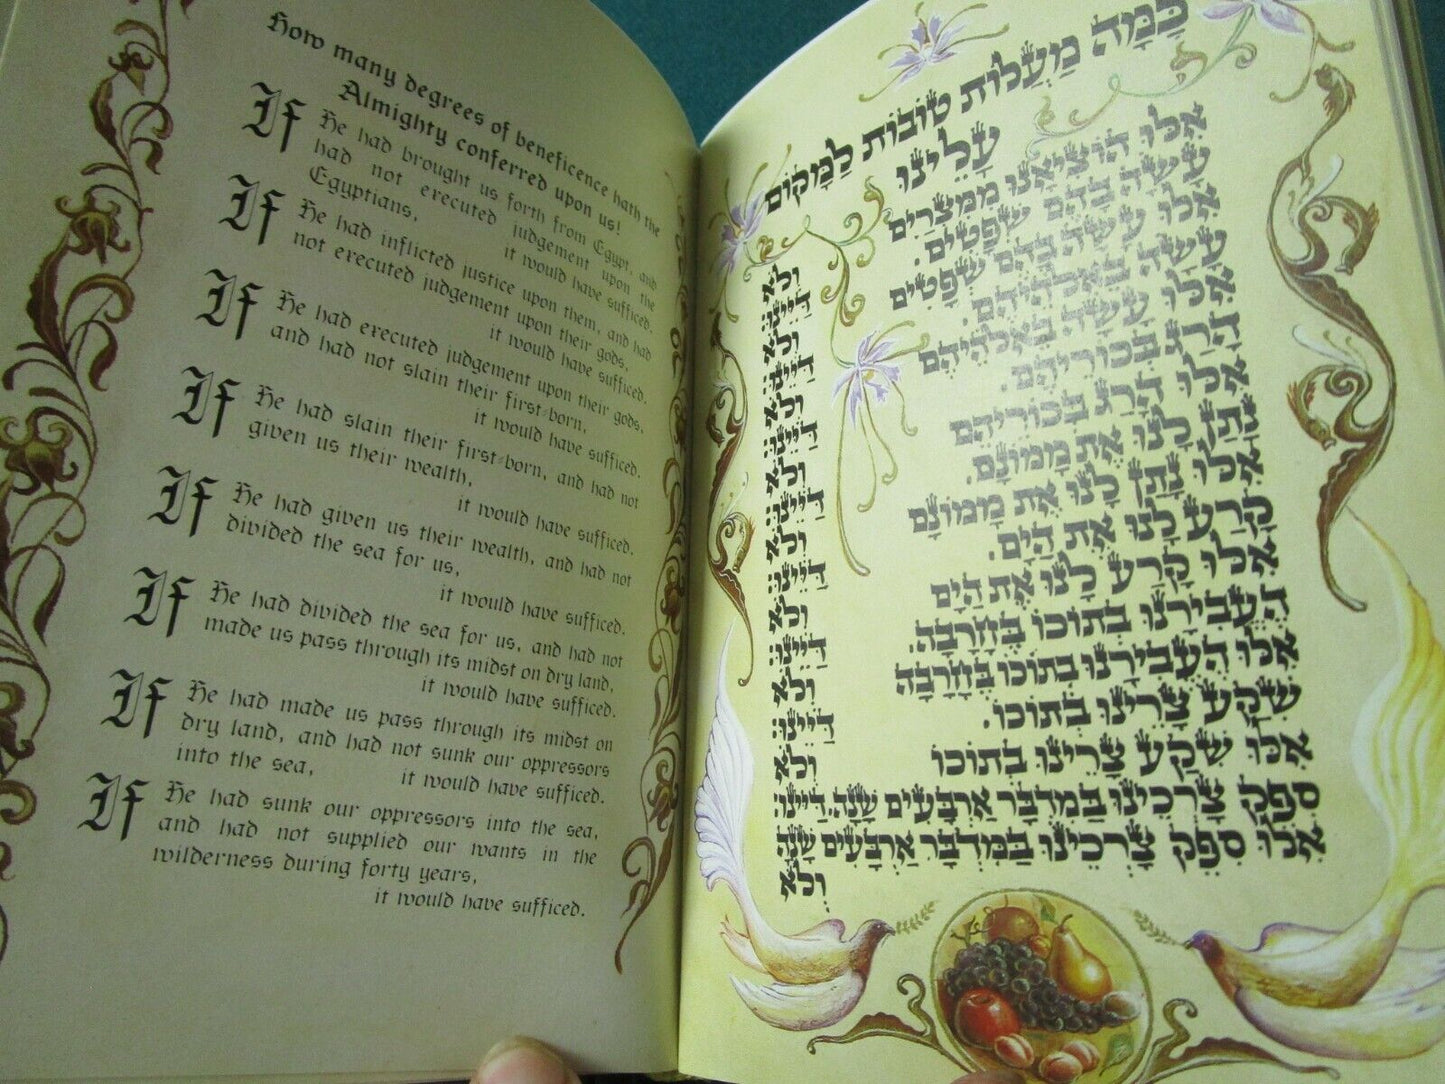 How many degrees of beneficence hath the
Almighty conferred upon us!
If He had brought us forth from Egypt, and
had not executed judgement upon the
Egyptians,
it would have sufficed.
If He had inflicted justice upon them, and had
not executed judgement upon their gods,
it would have sufficed.
If He had executed judgement upon their gods,
and had not slain their first-born,
it would have sufficed.
If He had slain their first-born, and had not
given us their wealth,
it would have sufficed.
If He had given us their wealth, and had not
divided the sea for us,
it would have sufficed.
If He had divided the sea for us, and had not
made us pass through its midst on dry land,
it would have sufficed.
If He had made us pass through its midst on
dry land, and had not sunk our oppressors
into the sea, it would have sufficed.
If He had sunk our oppressors into the sea,
and had not supplied our wants in the
wilderness during forty years,
it would have sufficed.
כַּמָּה מַעֲלוֹת טוֹבוֹת לַמָּקוֹם
עָלֵינוּ
אִלּוּ הוֹצִיאָנוּ מִמִּצְרַיִם וְלֹא
עָשָׂה בָהֶם שְׁפָטִים. דַּיֵּינוּ:
אִלּוּ עָשָׂה בָהֶם שְׁפָטִים וְלֹא
עָשָׂה בֵאלֹהֵיהֶם. דַּיֵּינוּ:
אִלּוּ עָשָׂה בֵאלֹהֵיהֶם וְלֹא
הָרַג בְּכוֹרֵיהֶם. דַּיֵּינוּ:
אִלּוּ הָרַג בְּכוֹרֵיהֶם וְלֹא
נָתַן לָנוּ אֶת מָמוֹנָם. דַּיֵּינוּ:
אִלּוּ נָתַן לָנוּ אֶת מָמוֹנָם וְלֹא
קָרַע לָנוּ אֶת הַיָּם. דַּיֵּינוּ:
אִלּוּ קָרַע לָנוּ אֶת הַיָּם וְלֹא
הֶעֱבִירָנוּ בְתוֹכוֹ בֶּחָרָבָה. דַּיֵּינוּ:
אִלּוּ הֶעֱבִירָנוּ בְתוֹכוֹ בֶּחָרָבָה וְלֹא
שִׁקַּע צָרֵינוּ בְּתוֹכוֹ. דַּיֵּינוּ:
אִלּוּ שִׁקַּע צָרֵינוּ בְּתוֹכוֹ וְלֹא
סִפֵּק צָרְכֵינוּ בַּמִּדְבָּר אַרְבָּעִים שָׁנָה. דַּיֵּינוּ:
אִלּוּ סִפֵּק צָרְכֵינוּ בַּמִּדְבָּר אַרְבָּעִים שָׁנָה
וְלֹא